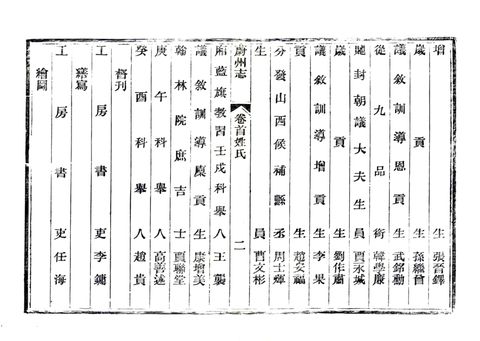 增生張晉鐸
歲貢生孫繼曾
議敘訓導恩貢生武銘勳
從九品銜韓學廉
貤封朝議大夫生員賈永城
歲貢生劉作肅
議敘訓導增貢生李果
貢生趙安福
分發山西候補縣丞周士輝
生員曹文彬
蔚州志 卷首姓氏 二
廂藍旗教習壬戌科舉人王襲
議敘訓導廩貢生康增美
翰林院庶吉士賈聯堂
庚午科舉人高善述
癸酉科舉人趙貴
督刊
工房書吏李鏞
繕寫
工房書吏任海
繪圖